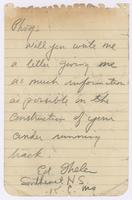 Phog:
Will you write me
a letter giving me
as much information
as possible on the
construction of your
cinder running
track.
Ed Thele
Southeast H.S.
K.C. Mo